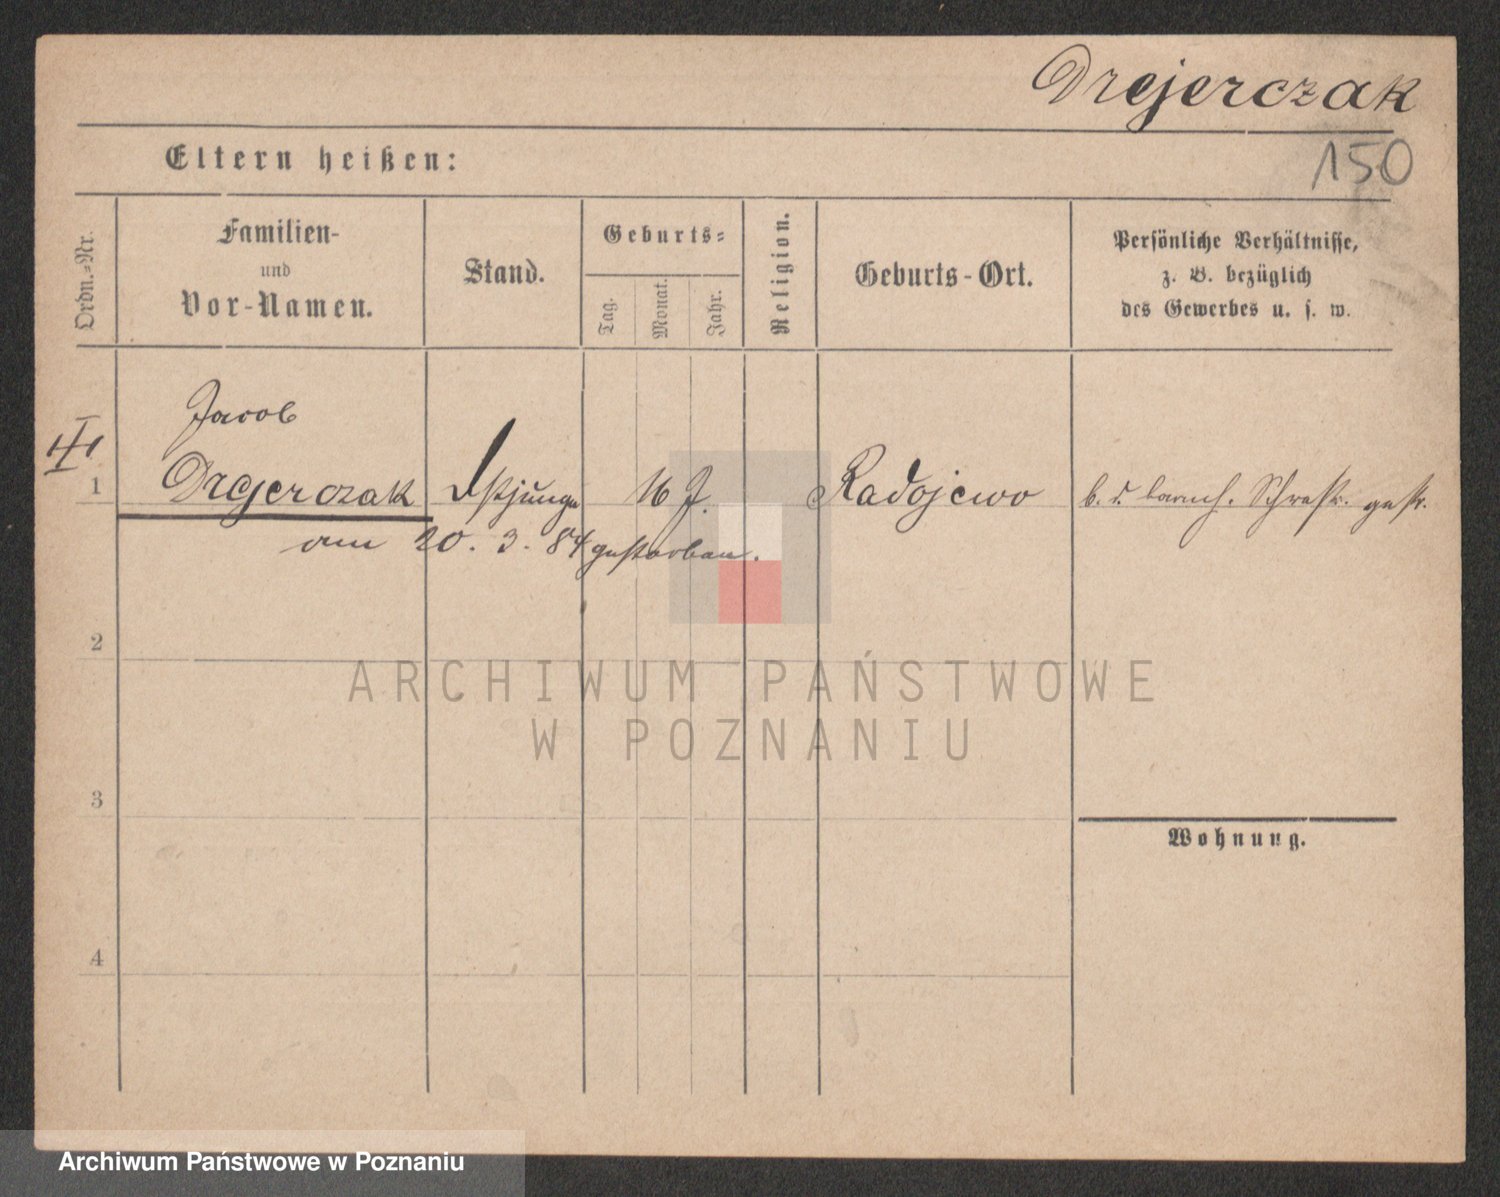 Drejerczak
150
Eltern heißen:
Ordn.-Nr.
Familien-
und
Vor-Namen.
Stand.
Geburts-
Tag.
Monat.
Jahr.
Religion.
Geburts-Ort.
Persönliche Verhältnisse,
z. B. bezüglich
des Gewerbes u. s. w.
Jacob
1 Drejerczak 16 J. Radojewo b. d. barmh. Schwestr. gest.
am 20. 3. 84 gestorben.
2
3
4
Wohnung.
ARCHIWUM PAŃSTWOWE
W POZNANIU
Archiwum Państwowe w Poznaniu